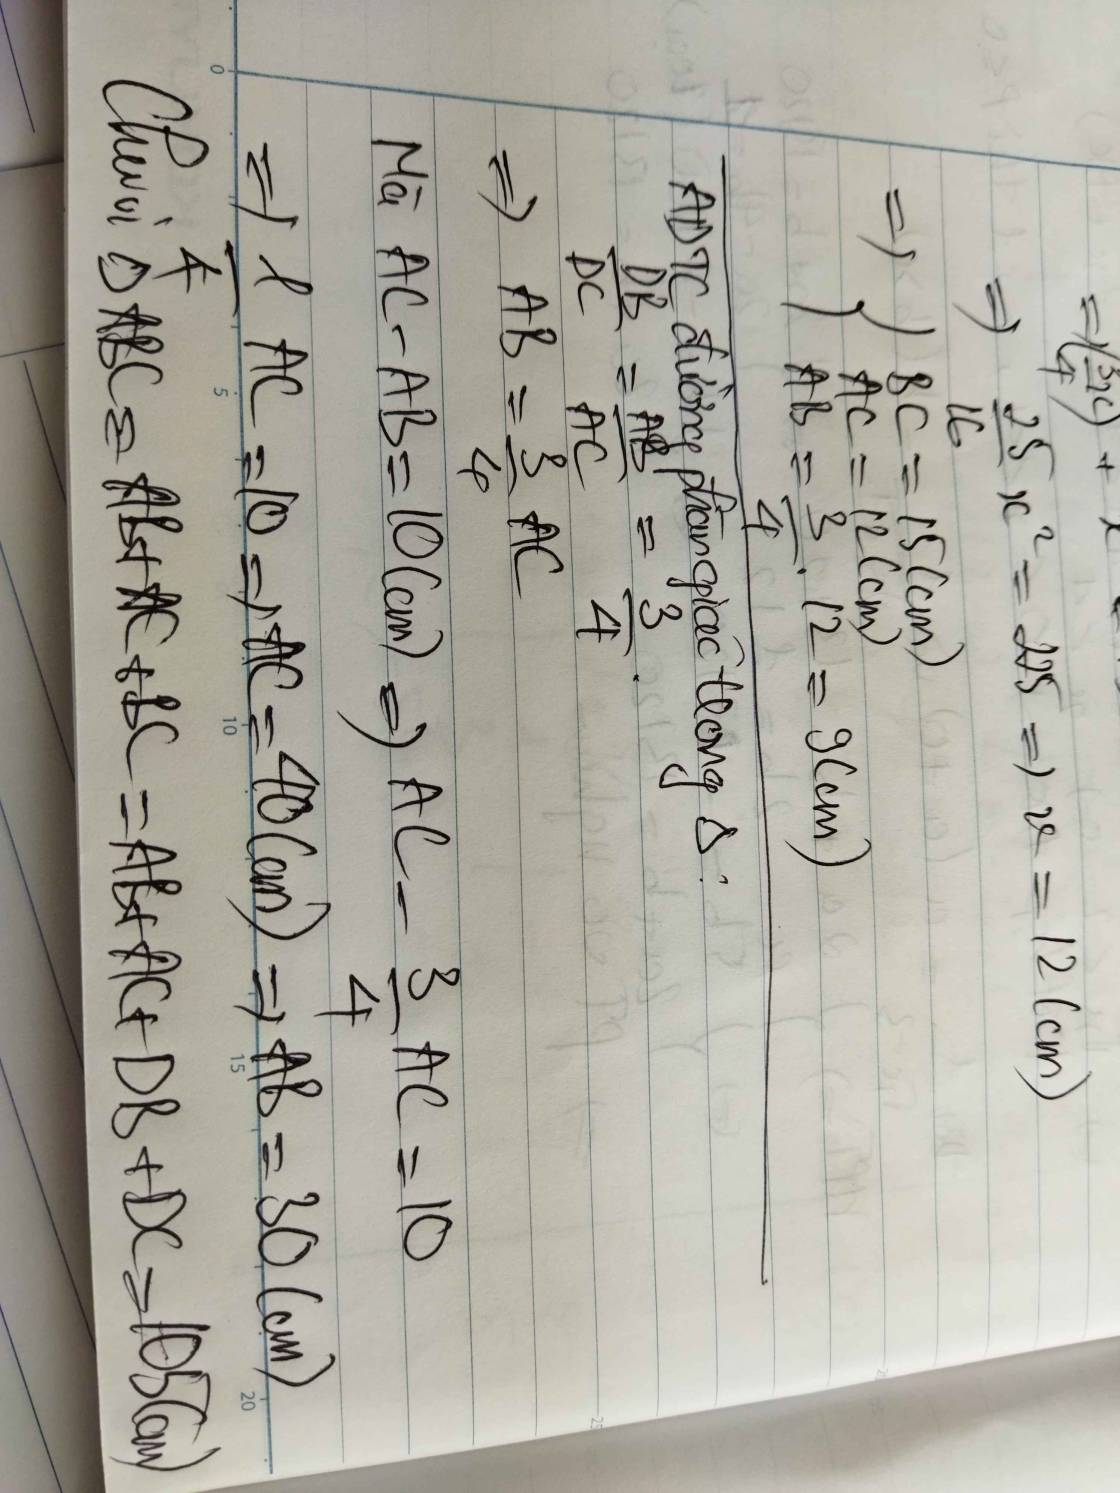 =) (3/4 x)² +
=) 25/16 x² = 225 =) x = 12 (cm)
=) } BC = 15 (cm)
AC = 12 (cm)
AB = 3/4 . 12 = 9 (cm)
ADTC đường phân giác trong Δ:
DB/DC = AB/AC = 3/4.
=) AB = 3/4 AC
Mà AC - AB = 10 (cm) =) AC - 3/4 AC = 10
=) 1/4 AC = 10 =) AC = 40 (cm) =) AB = 30 (cm)
Chu vi Δ ABC = AB + AC + BC = AB + AC + DB + DC = 105 (cm)
0
5
10
15
20
25